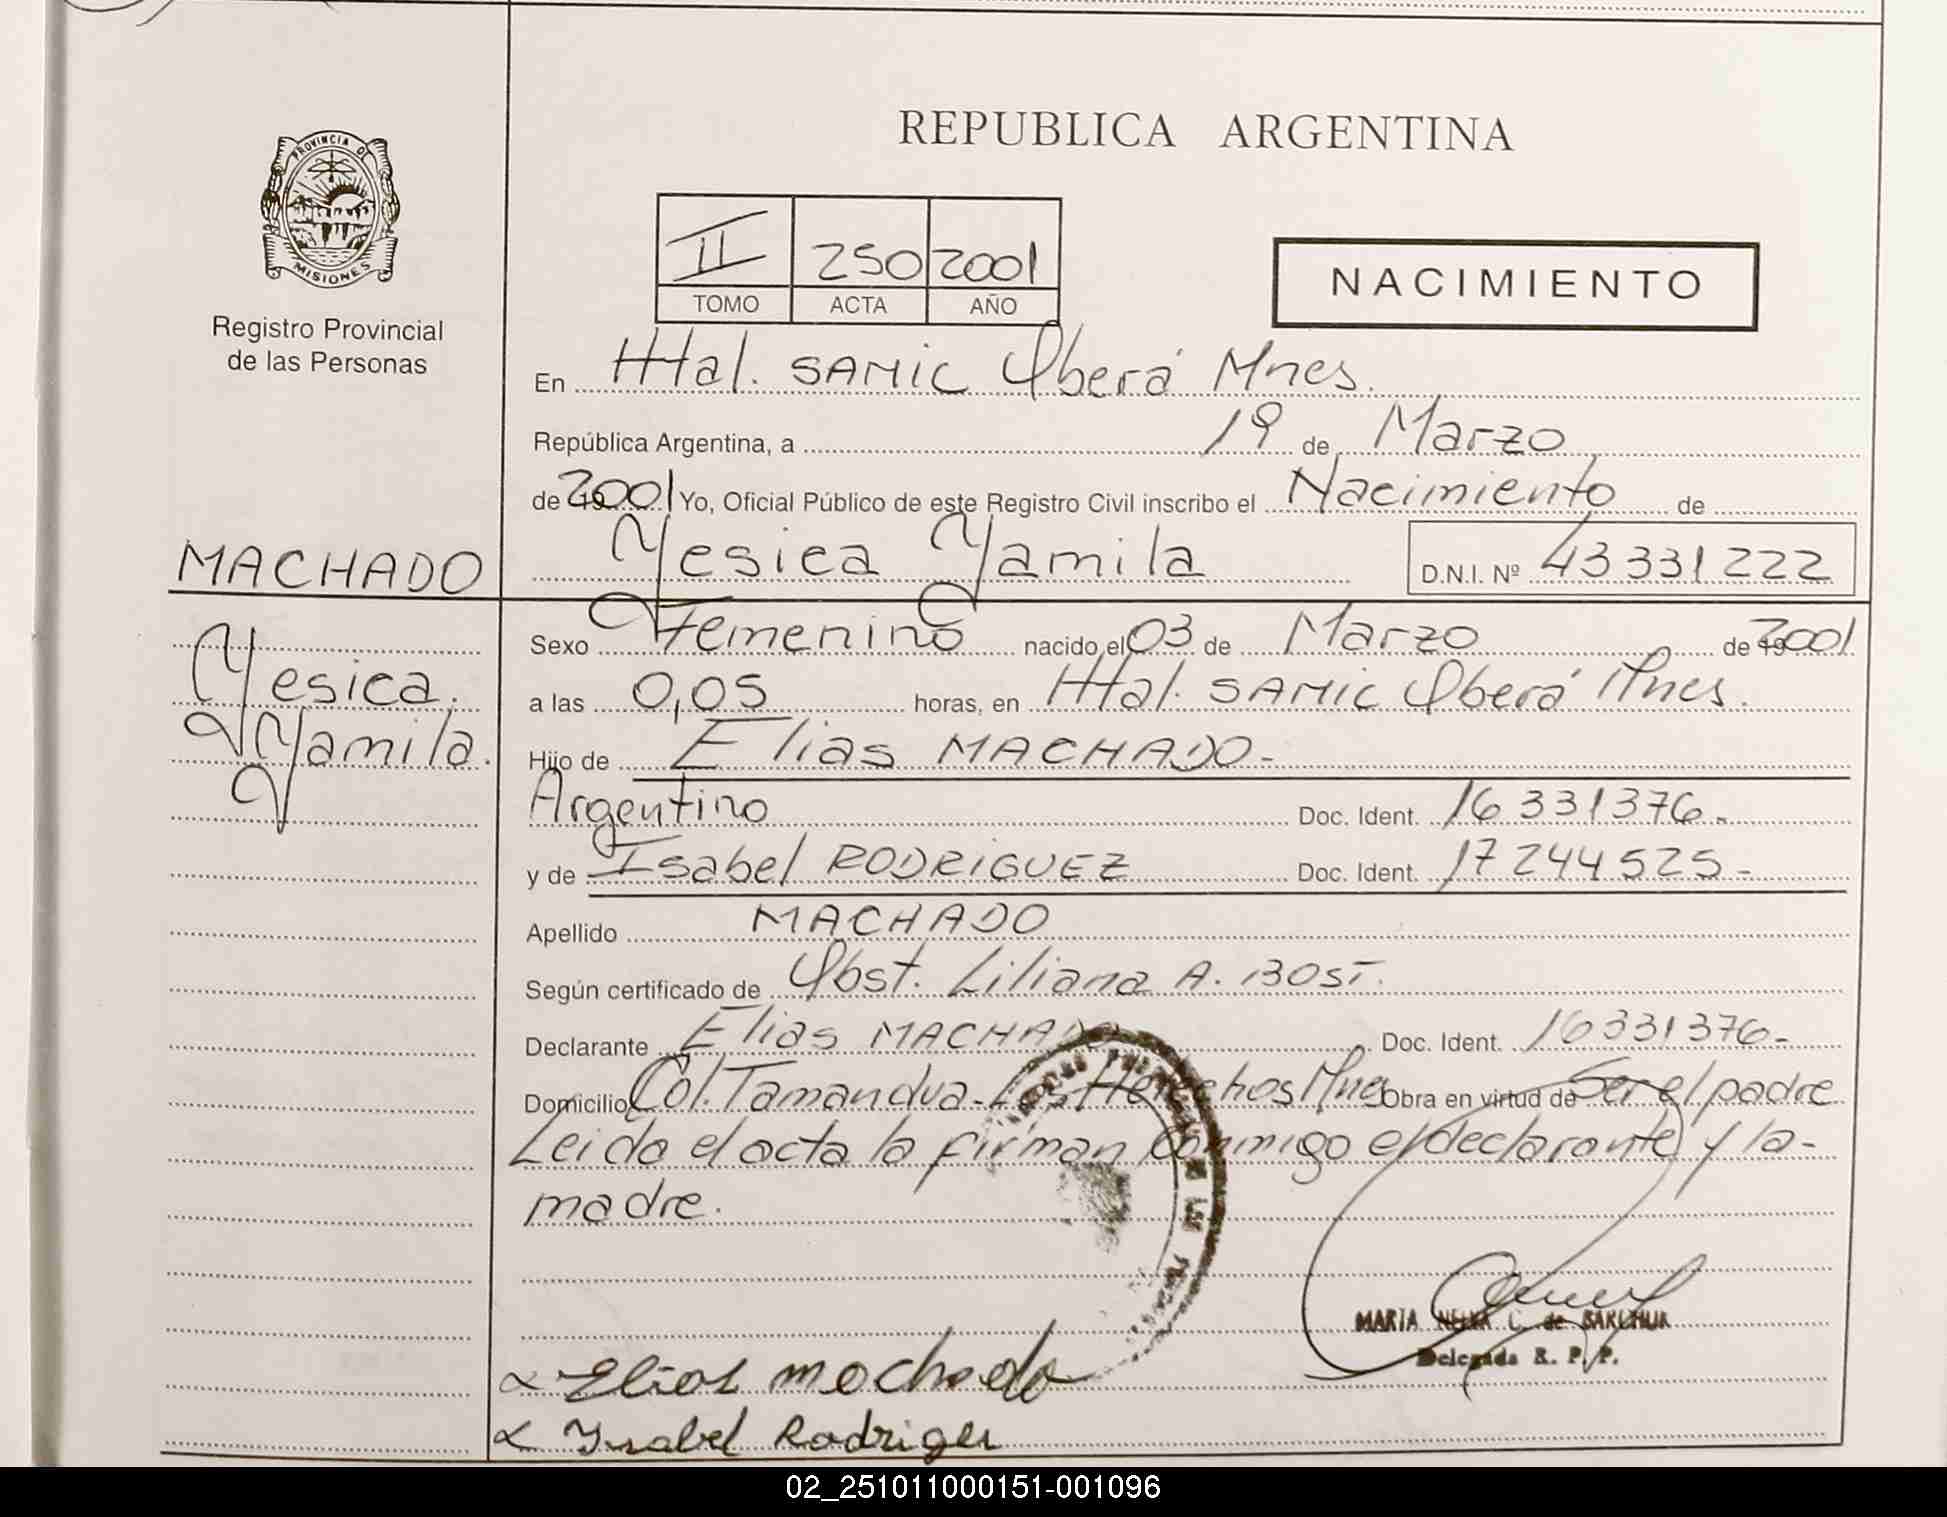 REPUBLICA ARGENTINA
PROVINCIA D
MISIONES
Registro Provincial
de las Personas
II 250 2001
TOMO ACTA AÑO
NACIMIENTO
En Htal. SAMIC Oberá Mnes.
República Argentina, a 19 de Marzo
de 2001 Yo, Oficial Público de este Registro Civil inscribo el Nacimiento de
Yesica Yamila D.N.I. Nº 43331222
MACHADO
Yesica
Yamila.
Sexo Femenino nacido el 03 de Marzo de 2001
a las 0,05 horas, en Htal. SAMIC Oberá Mnes.
Hijo de Elias MACHADO-
Argentino Doc. Ident. 16331376-
y de Isabel RODRIGUEZ Doc. Ident. 17244525-
Apellido MACHADO
Según certificado de Obst. Liliana A. BOST.
Declarante Elias MACHADO Doc. Ident. 16331376-
Domicilio Col. Tamandua-Los Helechos Mnes Obra en virtud de Ser el padre
Leida el acta la firman conmigo el declarante y la-
madre.
MARIA C. de
Delegada R. P. P.
Elias machado
Ysabel Rodriges
02_251011000151-001096